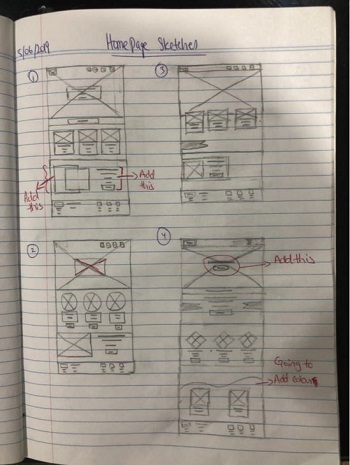 5/06/2019
Home Page Sketches
①
③
Add
this
Add
this
②
④
Add this
Going to
Add colours